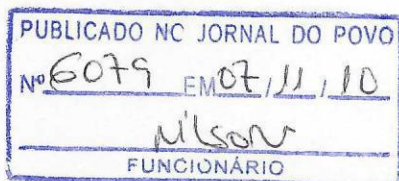 PUBLICADO NC JORNAL DO POVO
Nº 6079 EM 07/11/10
Nilson
FUNCIONÁRIO